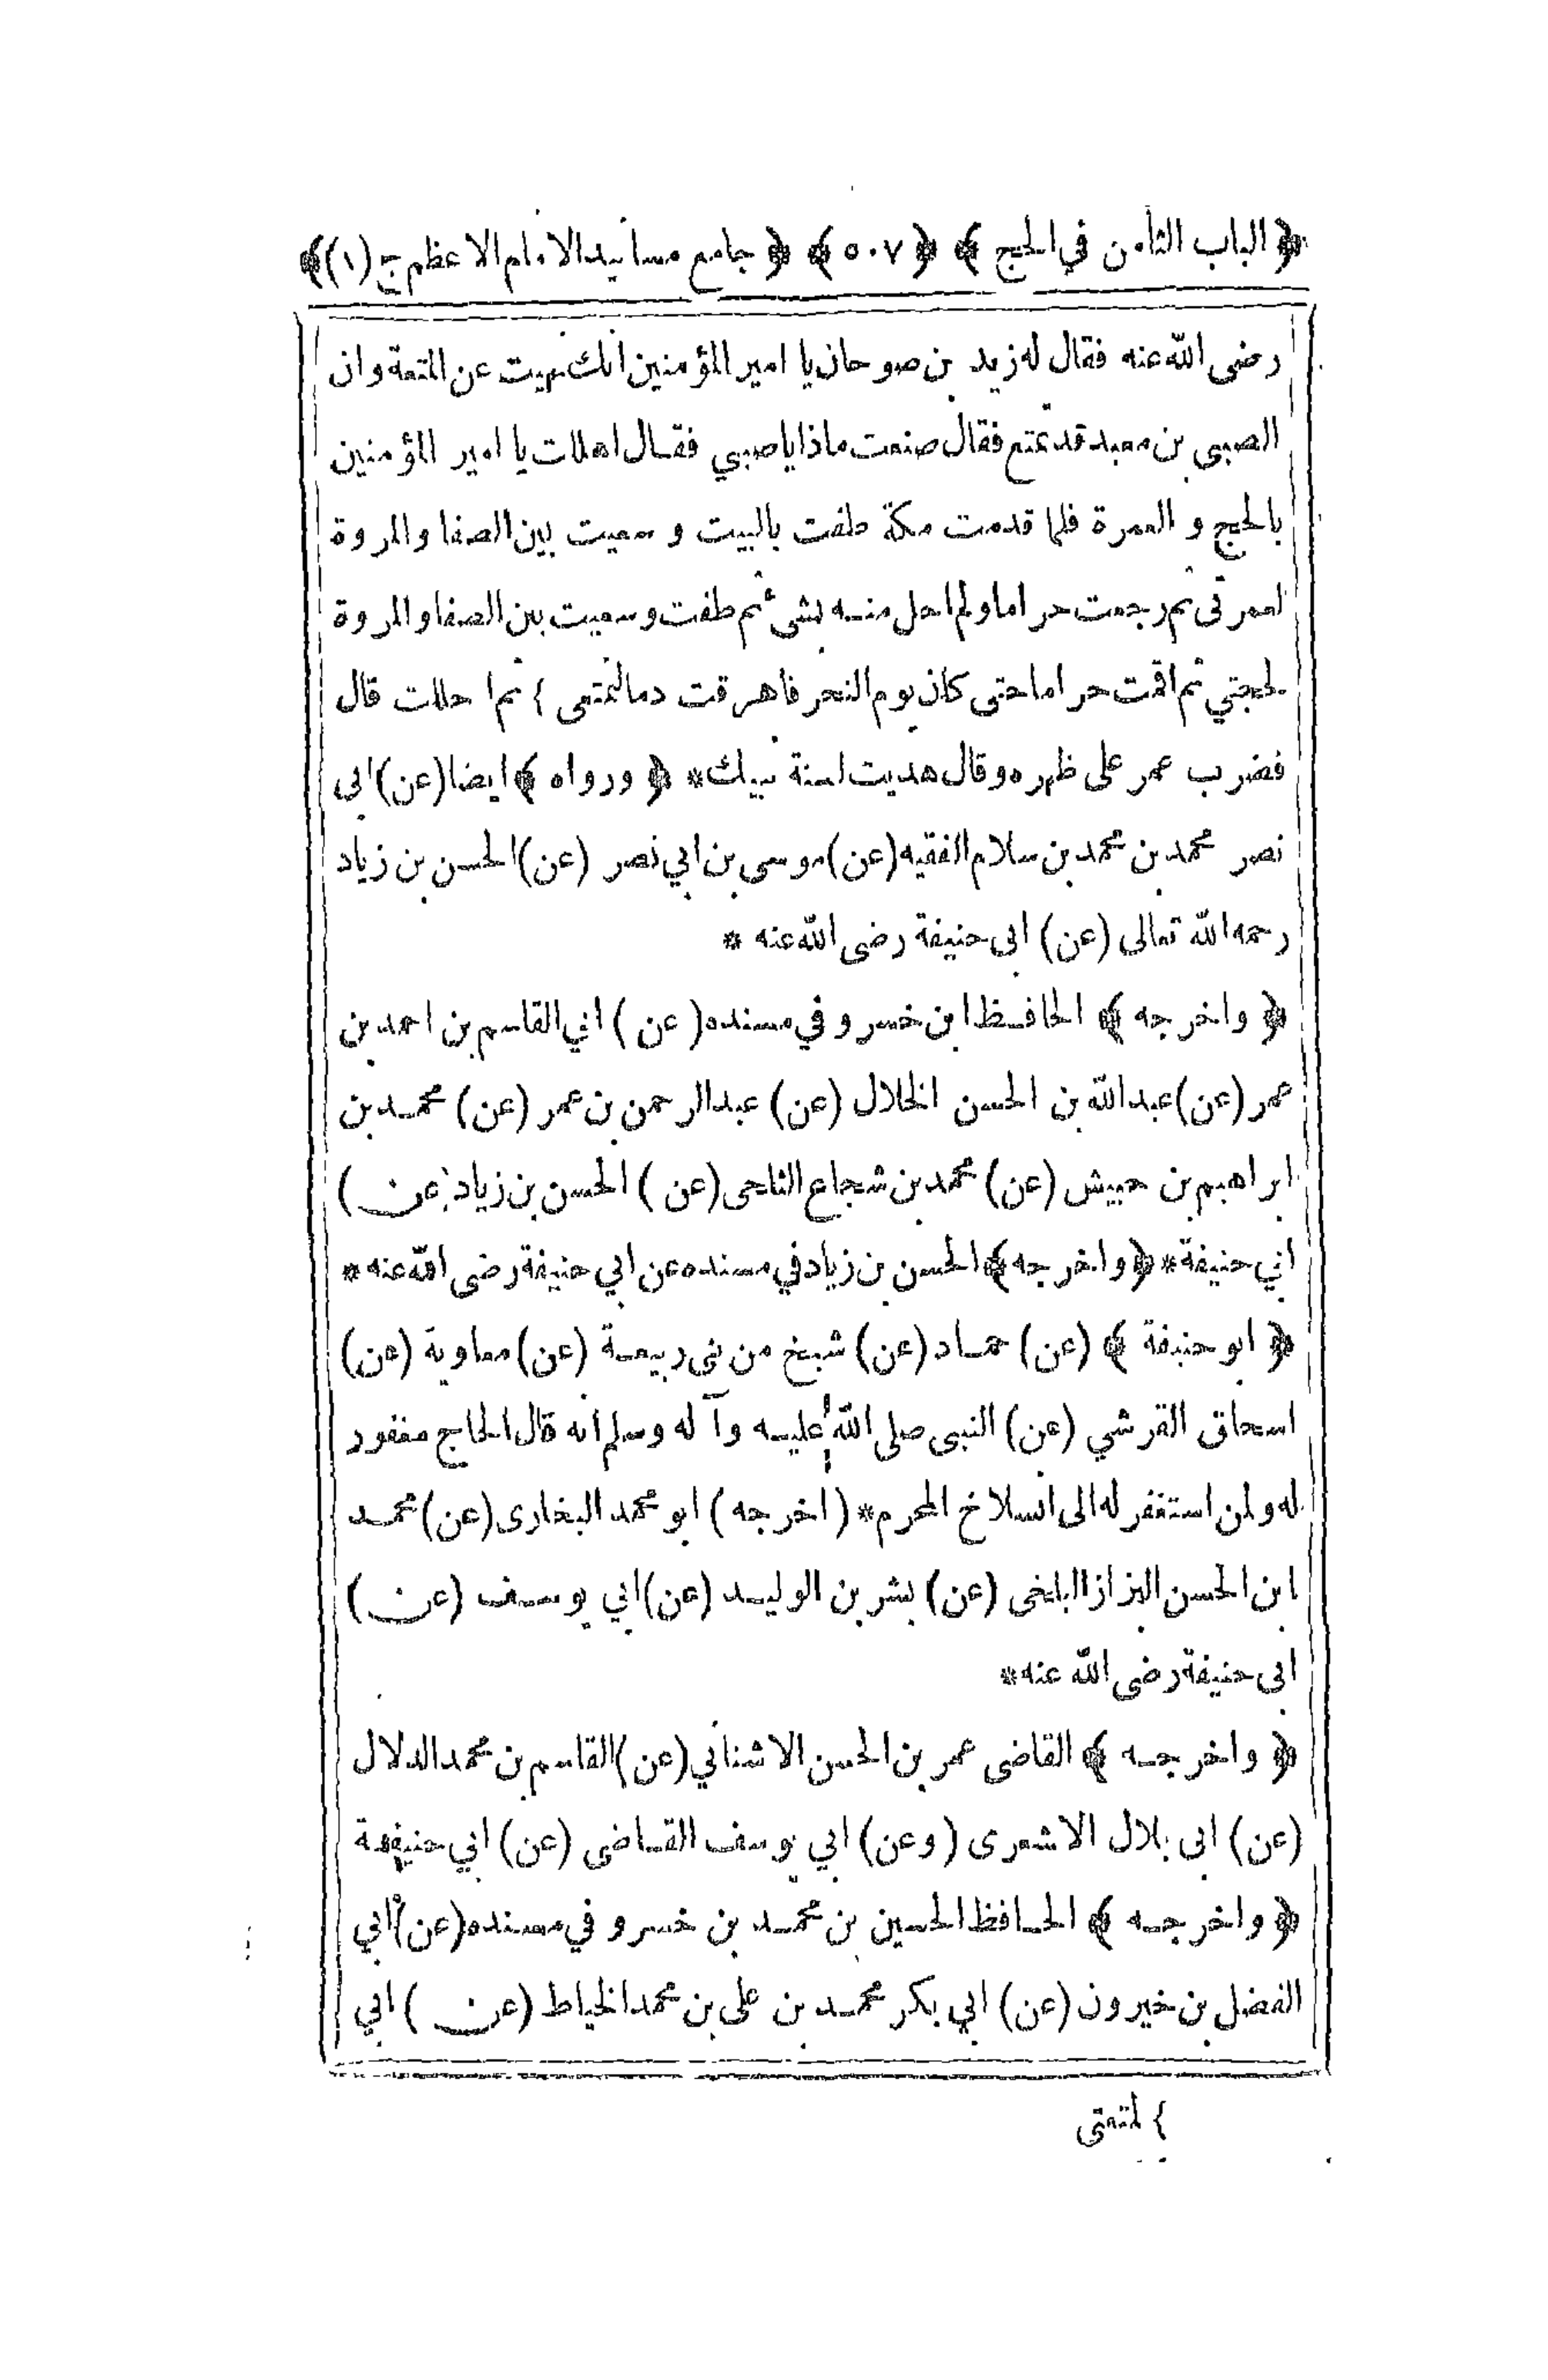 ﴿ الباب الثامن في الحج ﴾ ﴿ ٥٠٧ ﴾ ﴿ جامع مسانيد الامام الاعظم ج (١) ﴾
رضى الله عنه فقال له زيد بن صوحان يا امير المؤمنين انك نهيت عن المتعة وان
الصبى بن معبد قد تمتع فقال صنعت ماذا يا صبي فقال اهللت يا امير المؤمنين
بالحج و العمرة فلما قدمت مكة طفت بالبيت و سعيت بين الصفا والمروة
لعمرتى ثم رجعت حراما ولم احل منه بشئ ثم طفت وسعيت بين الصفا والمروة
لحجتي ثم اقمت حراما حتى كان يوم النحر فاهرقت دما لتمتعى } ثم احللت قال
فضرب عمر على ظهره وقال هديت لسنة نبيك* ﴿ ورواه ﴾ ايضا (عن) ابى
نصر محمد بن محمد بن سلام الفقيه (عن) موسى بن ابي نصر (عن) الحسن بن زياد
رحمه الله تعالى (عن) ابى حنيفة رضى الله عنه *
﴿ واخرجه ﴾ الحافظ ابن خسرو في مسنده (عن) ابي القاسم بن احمد بن
عمر (عن) عبدالله بن الحسن الخلال (عن) عبدالرحمن بن عمر (عن) محمد بن
ابراهيم بن حبيش (عن) محمد بن شجاع الثلجى (عن) الحسن بن زياد (عن)
ابي حنيفة* ﴿ واخرجه ﴾ الحسن بن زياد في مسنده عن ابي حنيفة رضى الله عنه *
﴿ ابو حنيفة ﴾ (عن) حماد (عن) شيخ من بنى ربيعة (عن) معاوية (عن)
اسحاق القرشي (عن) النبى صلى الله عليه وآله وسلم انه قال الحاج مغفور
له ولمن استغفر له الى انسلاخ المحرم* (اخرجه) ابو محمد البخارى (عن) محمد
ابن الحسن البزاز البلخى (عن) بشر بن الوليد (عن) ابي يوسف (عن)
ابى حنيفة رضى الله عنه*
﴿ واخرجه ﴾ القاضى عمر بن الحسن الاشناني (عن) القاسم بن محمد الدلال
(عن) ابى بلال الاشعرى (وعن) ابي يوسف القاضى (عن) ابي حنيفة
﴿ واخرجه ﴾ الحافظ الحسين بن محمد بن خسرو في مسنده (عن) ابي
الفضل بن خيرون (عن) ابي بكر محمد بن على بن محمد الخياط (عن) ابي
} لمتعتى